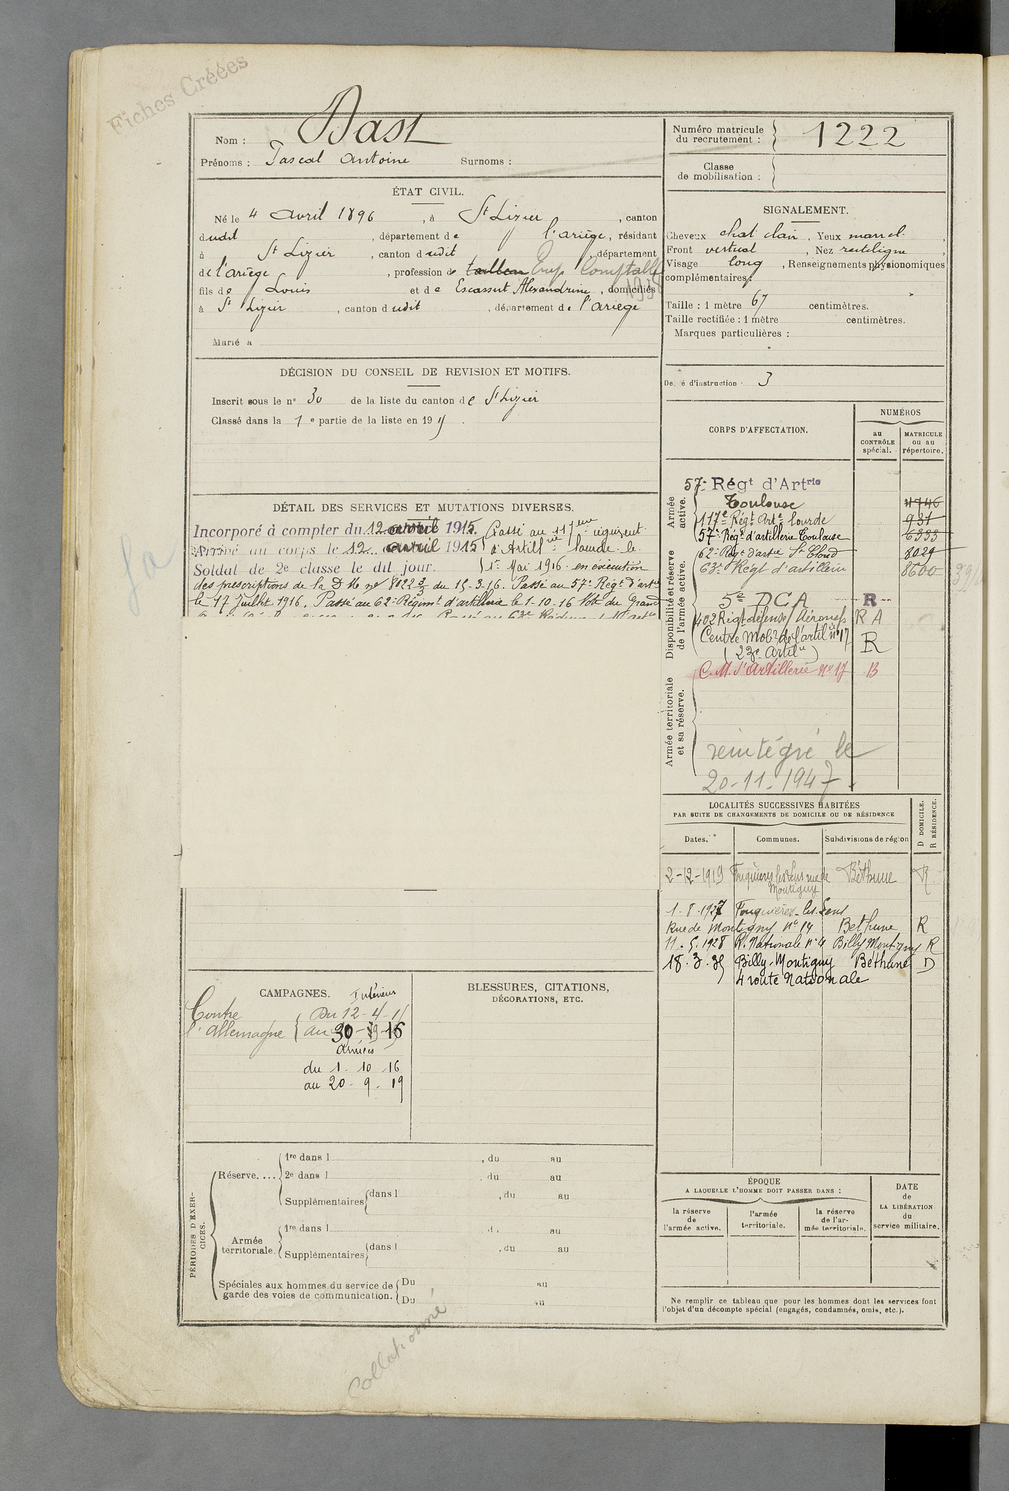 Fiches Créées
Nom : Dast
Prénoms : Pascal Antoine Surnoms :
Numéro matricule du recrutement : 1222
Classe de mobilisation :
ÉTAT CIVIL.
Né le 4 avril 1896, à St Lizier, canton
dudit, département de l'ariège, résidant
à St Lizier, canton dudit, département
de l'ariège, profession de tailleur Emp. Comptable
fils de Louis et de Escassut Alexandrine, domiciliés
à St Lizier, canton dudit, département de l'ariège
Marié à
SIGNALEMENT.
Cheveux chat clair, Yeux marr.
Front vertical, Nez rectiligne,
Visage long, Renseignements physionomiques
complémentaires
Taille : 1 mètre 67 centimètres.
Taille rectifiée : 1 mètre centimètres.
Marques particulières :
d'instruction 3
DÉCISION DU CONSEIL DE REVISION ET MOTIFS.
Inscrit sous le n° 30 de la liste du canton de St Lizier
Classé dans la 1e partie de la liste en 19
CORPS D'AFFECTATION.
NUMÉROS
au CONTRÔLE spécial.
MATRICULE ou au répertoire.
Armée active.
57e Régt d'Artrie
Toulouse
117e Régt Arte lourde 931
57e Régt d'artillerie Toulouse 6333
62e Régt d'artie St Cloud 8024
63e Régt d'artillerie 8560
Disponibilité et réserve de l'armée active.
5e DCA R
402 Régt défense/Aéronefs R A
Centre Mobon de l'artil n° 17 R
(23e Artilie)
C.M. d'Artillerie N° 17 B
Armée territoriale et sa réserve.
réintégré le
20-11-1947
DÉTAIL DES SERVICES ET MUTATIONS DIVERSES.
Incorporé à compter du 12 avril 1915. Passé au 117eme régiment
Arrivé au corps le 12 avril 1915 d'Artillrie lourde le
Soldat de 2e classe le dit jour. 1er Mai 1916 en exécution
des prescriptions de la D Mle n° 8022 3/3 du 15.3.16. Passé au 57e Régt d'artie
le 17 Juillet 1916. Passé au 62e Régimt d'artillerie le 1-10-16
LOCALITÉS SUCCESSIVES HABITÉES
PAR SUITE DE CHANGEMENTS DE DOMICILE OU DE RÉSIDENCE
Dates. Communes. Subdivisions de région D DOMICILE. R RÉSIDENCE.
2-12-1919 Fouquières les Lens rue de Montigny Béthune R
1.8.1927 Fouquières-les-Lens
Rue de Montigny n° 14 Béthune R
11.5.1928 R. Nationale n° 4 Billy Montigny R
18.3.35 Billy-Montigny Béthune D
4 route Nationale
CAMPAGNES.
Intérieur
Contre Du 12-4-15
l'Allemagne au 30-9-16
Armées
du 1 10 16
au 20-9-19
BLESSURES, CITATIONS,
DÉCORATIONS, ETC.
PÉRIODES D'EXERCICES.
Réserve.... 1re dans l , du au
2e dans l , du au
Supplémentaires dans l , du au
Armée territoriale. 1re dans l , du au
Supplémentaires dans l , du au
Spéciales aux hommes du service de Du au
garde des voies de communication. Du au
ÉPOQUE
A LAQUELLE L'HOMME DOIT PASSER DANS :
la réserve de l'armée active.
l'armée territoriale.
la réserve de l'armée territoriale.
DATE de LA LIBÉRATION du service militaire.
Ne remplir ce tableau que pour les hommes dont les services font
l'objet d'un décompte spécial (engagés, condamnés, omis, etc.).
Collationné